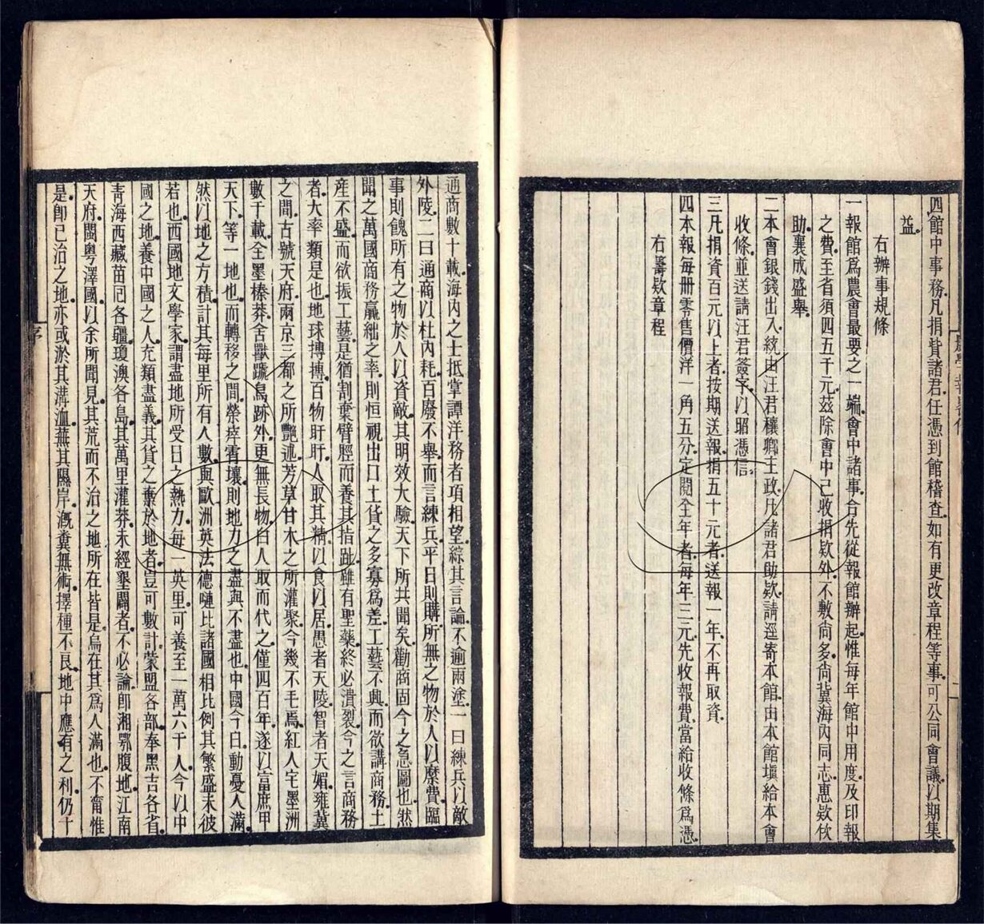 四館中事務凡捐貲諸君任憑到館稽查如有更改章程等事可公同會議以期集
益
右辦事規條
一報館爲農會最要之一端會中諸事合先從報館辦起惟每年館中用度及印報
之費至省須四五千元茲除會中已收捐欵外不敷尙多尙冀海內同志惠欵佽
助襄成盛舉
二本會銀錢出入統由汪君穰卿主政凡諸君助欵請逕寄本館由本館塡給本會
收條並送請汪君簽字以昭憑信
三凡捐資百元以上者按期送報捐五十元者送報一年不再取資
四本報每册零售價洋一角五分定閱全年者每年三元先收報費當給收條爲憑
右籌欵章程
通商數十載海內之士抵掌譚洋務者項相望綜其言論不逾兩塗一曰練兵以敵
外陵二曰通商以杜內耗百廢不舉而言練兵平日則購所無之物於人以糜費臨
事則餽所有之物於人以資敵其明效大驗天下所共聞矣勸商固今之急圖也然
聞之萬國商務贏絀之率則恒視出口土貨之多寡爲差工藝不興而欲講商務土
産不盛而欲振工藝是猶割棄臂脛而養其指趾雖有聖藥終必潰裂今之言商務
者大率類是也地球摶摶百物旴旴人取其精以食以居愚者天陵智者天媚雍冀
之間古號天府兩京三都之所艷述芳草甘木之所灌聚今幾不毛焉紅人宅墨洲
數千載全墨榛莽舍獸蹏鳥跡外更無長物白人取而代之僅四百年遂以富庶甲
天下等一地也而轉移之間榮瘁霄壤則地力之盡與不盡也中國今日動憂人滿
然以地之方積計其每里所有人數與歐洲英法德嗹比諸國相比例其繁盛未彼
若也西國地文學家謂盡地所受日之熱力每一英里可養至一萬六千人今以中
國之地養中國之人充類盡義其貨之棄於地者豈可數計蒙盟各部奉黑吉各省
靑海西藏苗囘各疆瓊澳各島其萬里灌莽未經墾闢者不必論卽湘鄂腹地江南
天府閩粵澤國以余所聞見其荒而不治之地所在皆是烏在其爲人滿也不甯惟
是卽已治之地亦或淤其溝洫蕪其隰岸漑糞無術擇種不良地中應有之利仍十
序